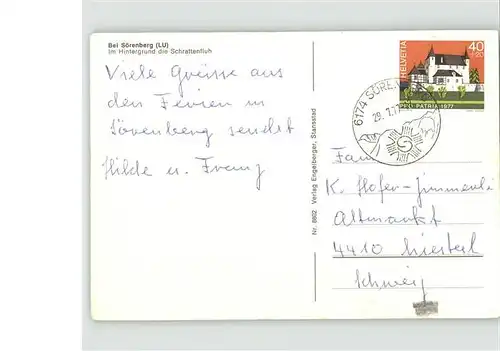 Bei Sörenberg (LU)
Im Hintergrund die Schrattenfluh
Viele Grüsse aus
den Ferien in
Sörenberg sendet
Hilde u. Franz
Nr. 8802 Verlag Engelberger, Stansstad
HELVETIA
40
+20
PRO PATRIA 1977
6174
Fam
K. Hofer-Zimmerli
Altmarkt
4410 Liestal
Schweiz